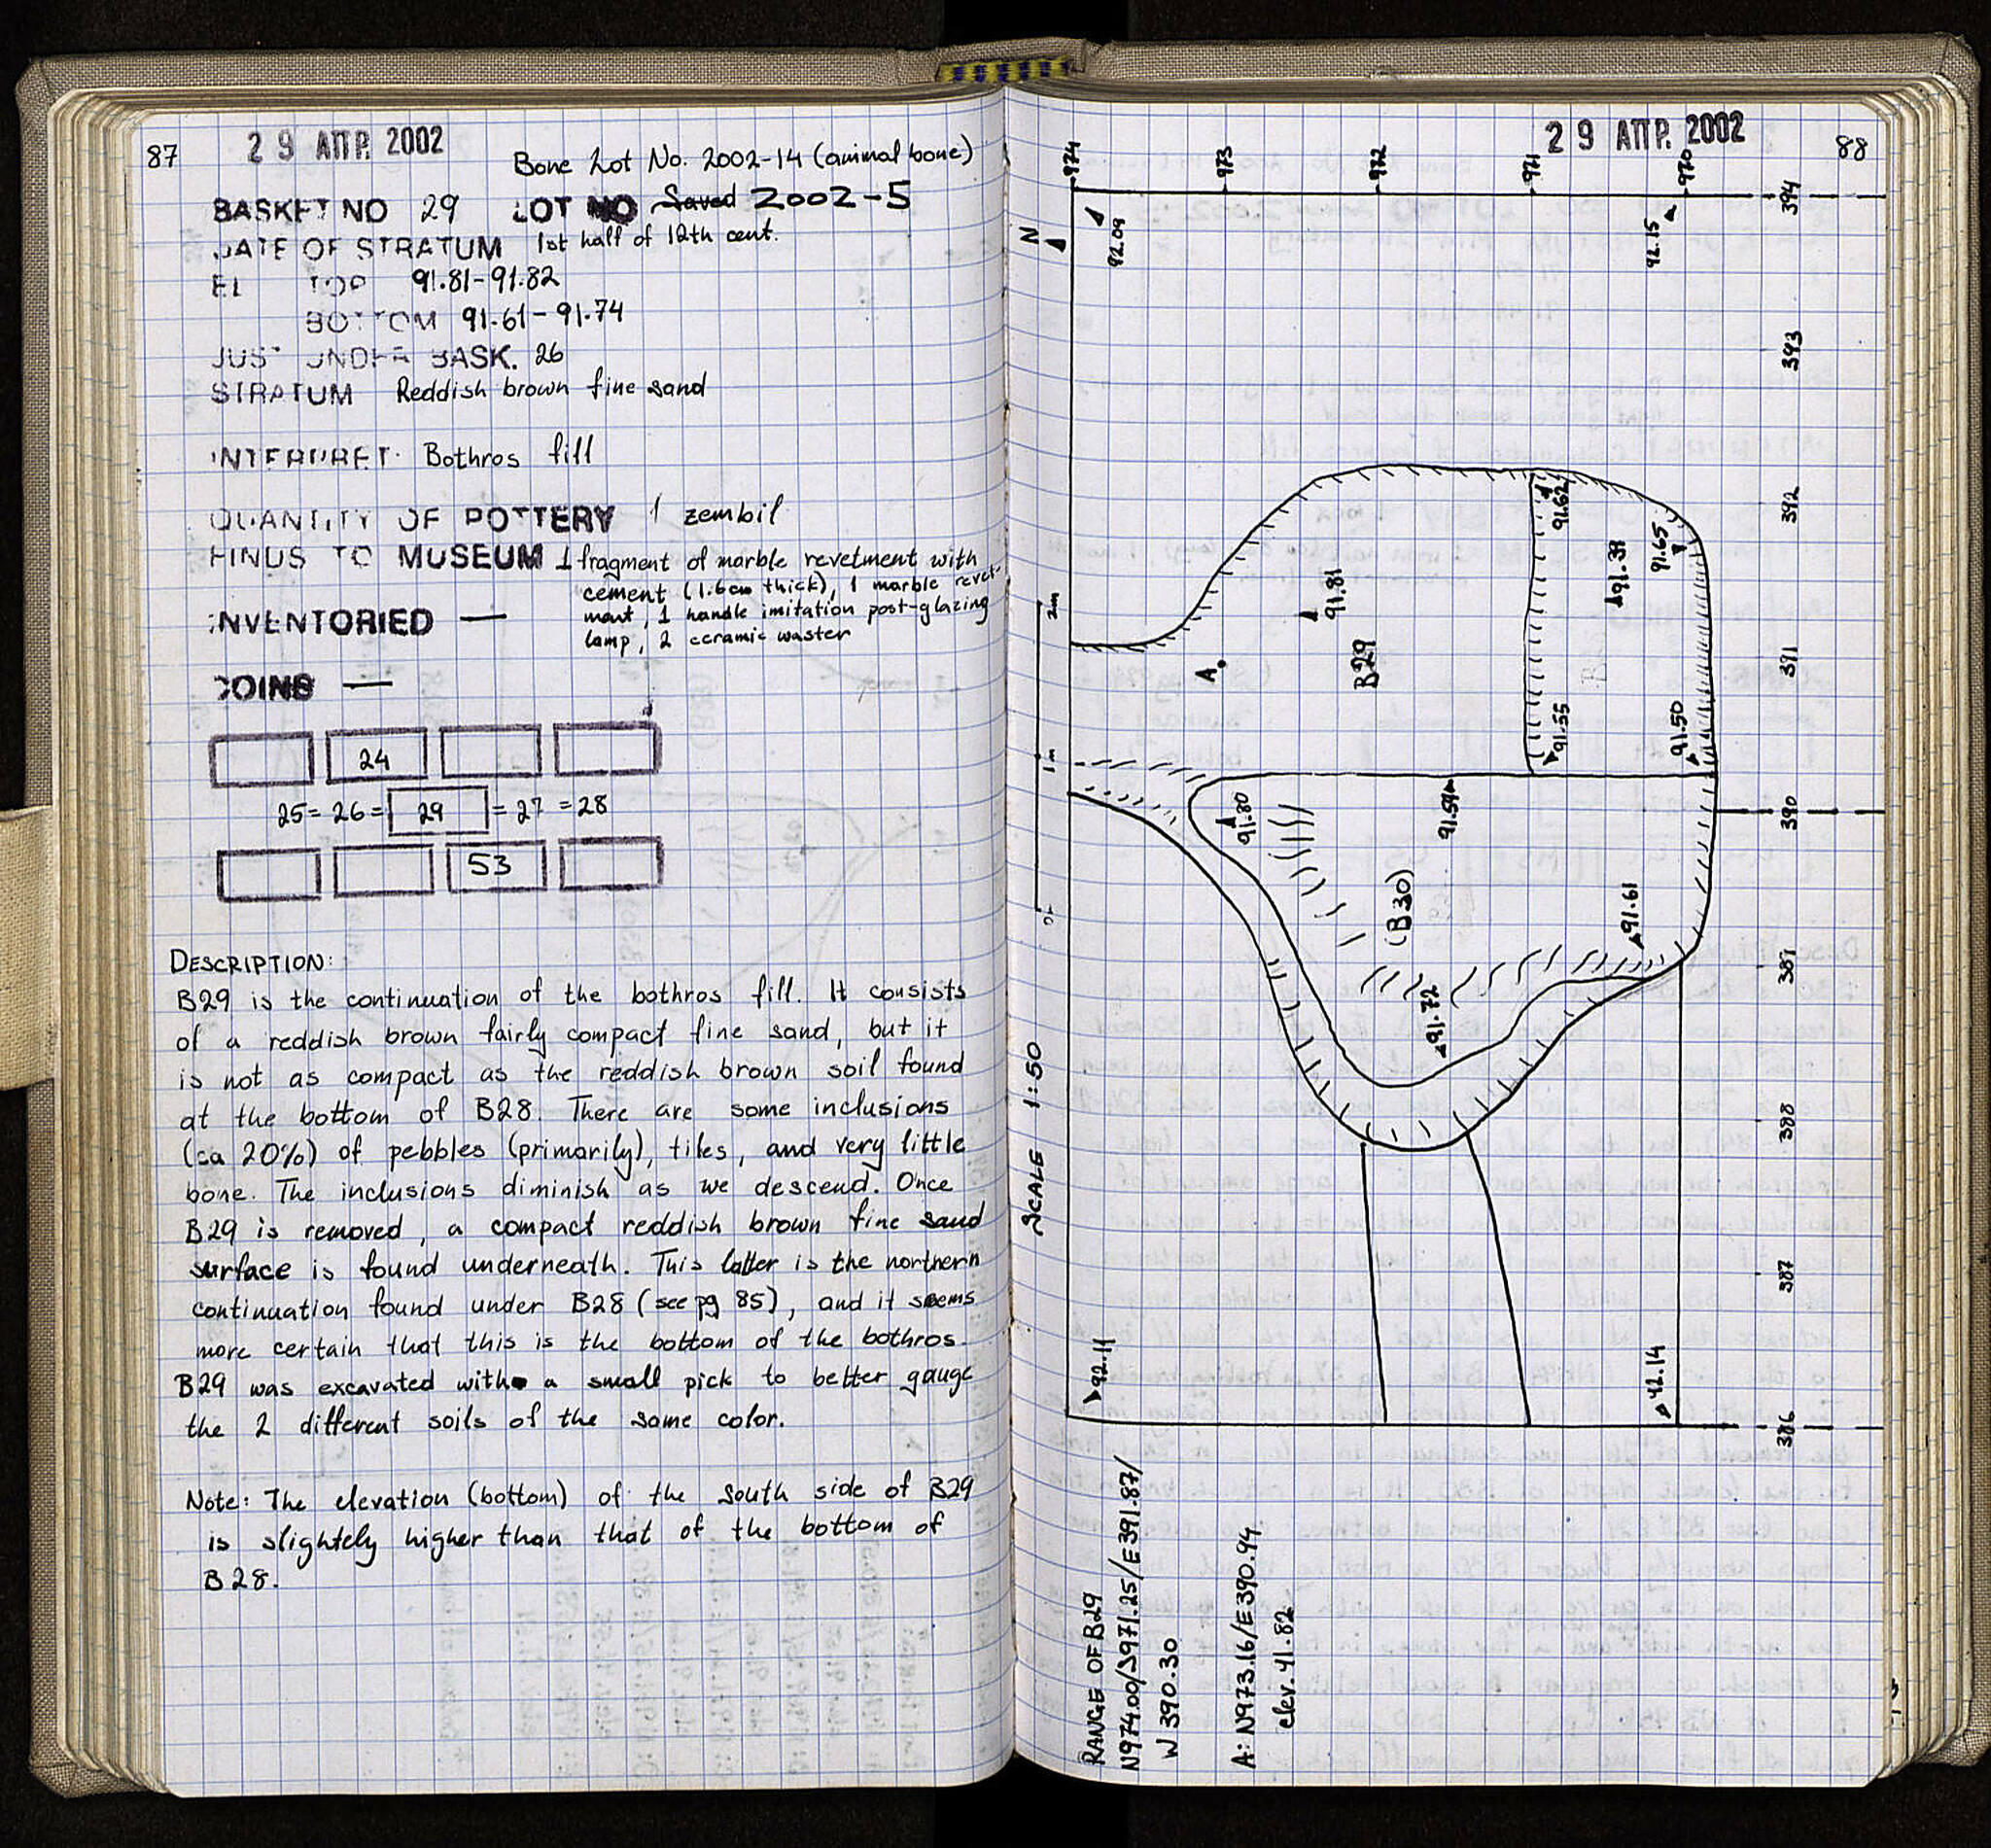 87
29 ΑΠΡ. 2002
Bone Lot No. 2002-14 (animal bone)
BASKET NO 29 LOT NO Saved 2002-5
DATE OF STRATUM 1st half of 12th cent.
EL TOP 91.81-91.82
BOTTOM 91.61-91.74
JUST UNDER BASK. 26
STRATUM Reddish brown fine sand
INTERPRET. Bothros fill
QUANTITY OF POTTERY 1 zembil
FINDS TO MUSEUM 1 fragment of marble revetment with
cement (1.6cm thick), 1 marble revet-
ment, 1 handle imitation post-glazing
lamp, 2 ceramic waster
INVENTORIED —
COINS —
24
25 = 26 = 29 = 27 = 28
53
DESCRIPTION:
B29 is the continuation of the bothros fill. It consists
of a reddish brown fairly compact fine sand, but it
is not as compact as the reddish brown soil found
at the bottom of B28. There are some inclusions
(ca 20%) of pebbles (primarily), tiles, and very little
bone. The inclusions diminish as we descend. Once
B29 is removed, a compact reddish brown fine sand
surface is found underneath. This latter is the northern
continuation found under B28 (see pg 85), and it seems
more certain that this is the bottom of the bothros.
B29 was excavated with a small pick to better gauge
the 2 different soils of the same color.
Note: The elevation (bottom) of the south side of B29
is slightely higher than that of the bottom of
B28.
29 ΑΠΡ. 2002
88
974
973
972
971
970
394
393
392
391
390
389
388
387
386
N
92.09
92.15
91.62
91.65
91.39
91.81
B29
A.
91.55
91.50
2m
1m
0
91.80
91.59
(B30)
91.61
91.72
SCALE 1:50
92.11
92.14
RANGE OF B29
N974.00/S971.25/E391.87/
W390.30
A: N973.16/E390.94
elev. 91.82